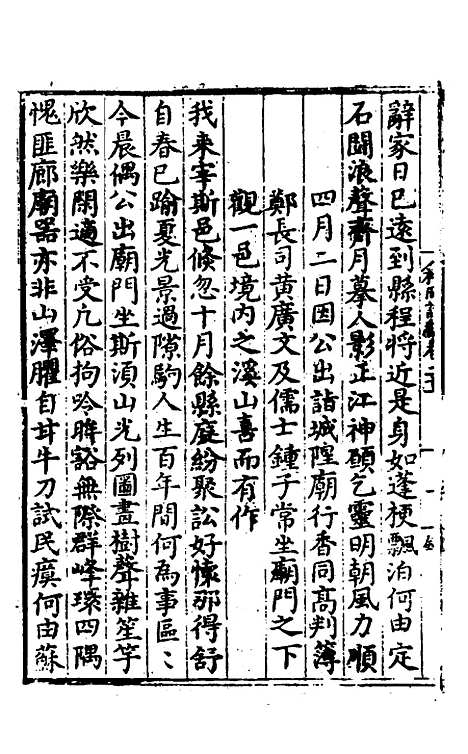 辭家日已遠到縣程將近是身如蓬梗飄泊何由定
石鬪浪聲齊月摹人影正江神願乞靈明朝風力順
四月二日因公出詣城隍廟行香同高判簿
鄭長司黄廣文及儒士鍾子常坐廟門之下
觀一邑境内之溪山喜而有作
我来宰斯邑倐忽十月餘縣庭紛聚訟好懷那得舒
自春已踰夏光景過隙駒人生百年間何為事區〻
今晨偶公出廟門坐斯湏山光列圖畫樹聲雜笙竽
欣然樂閑適不受凢俗拘吟眸豁無際群峰環四隅
愧匪廊廟器亦非山澤臞自甘牛刀試民瘼何由蘇